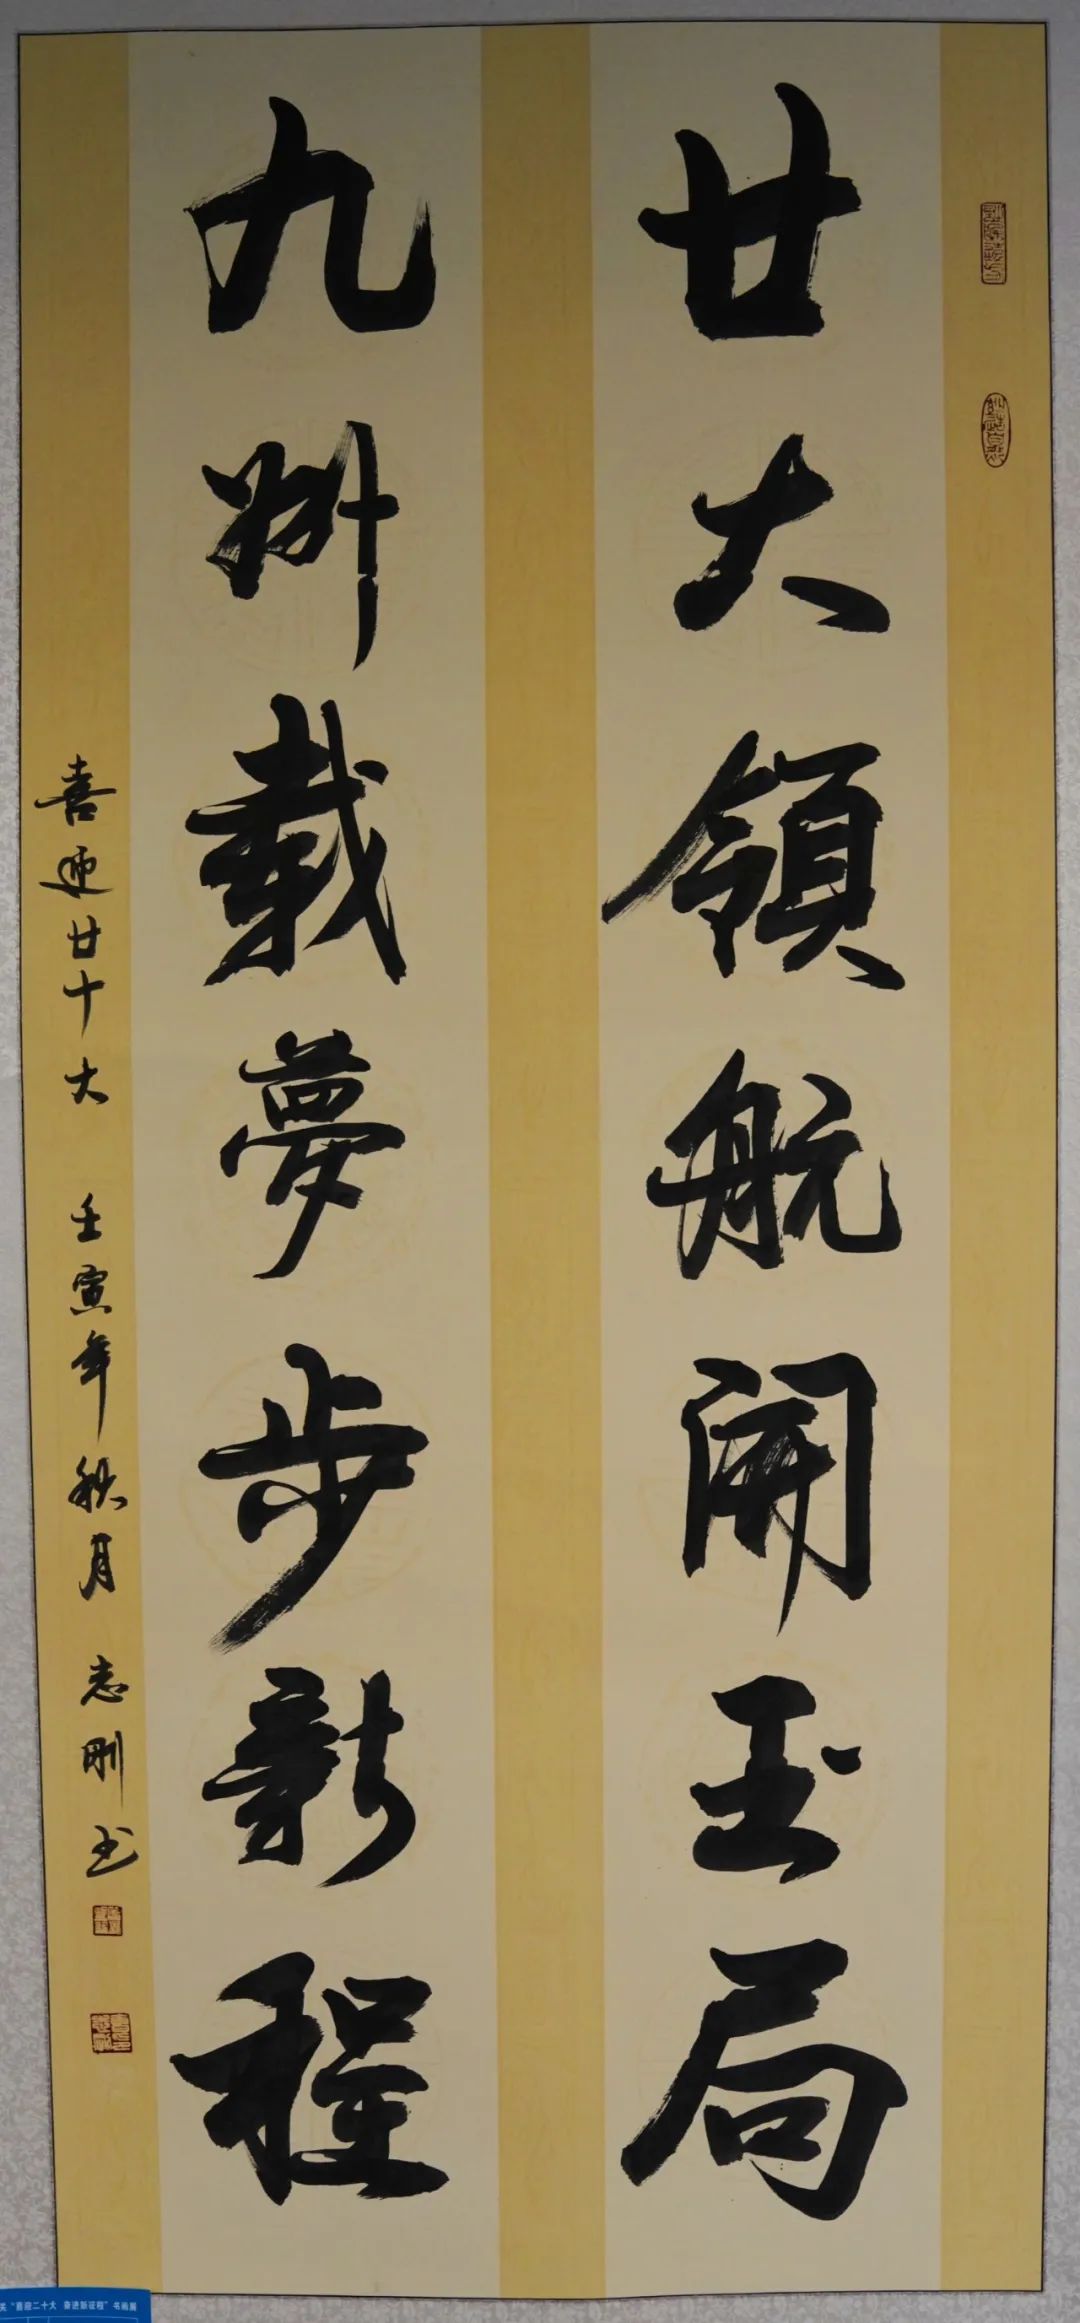 廿大領航開玉局
九州載夢步新程
喜迎廿十大 壬寅年秋月 志刚书
关“喜迎二十大 奋进新征程”书画展